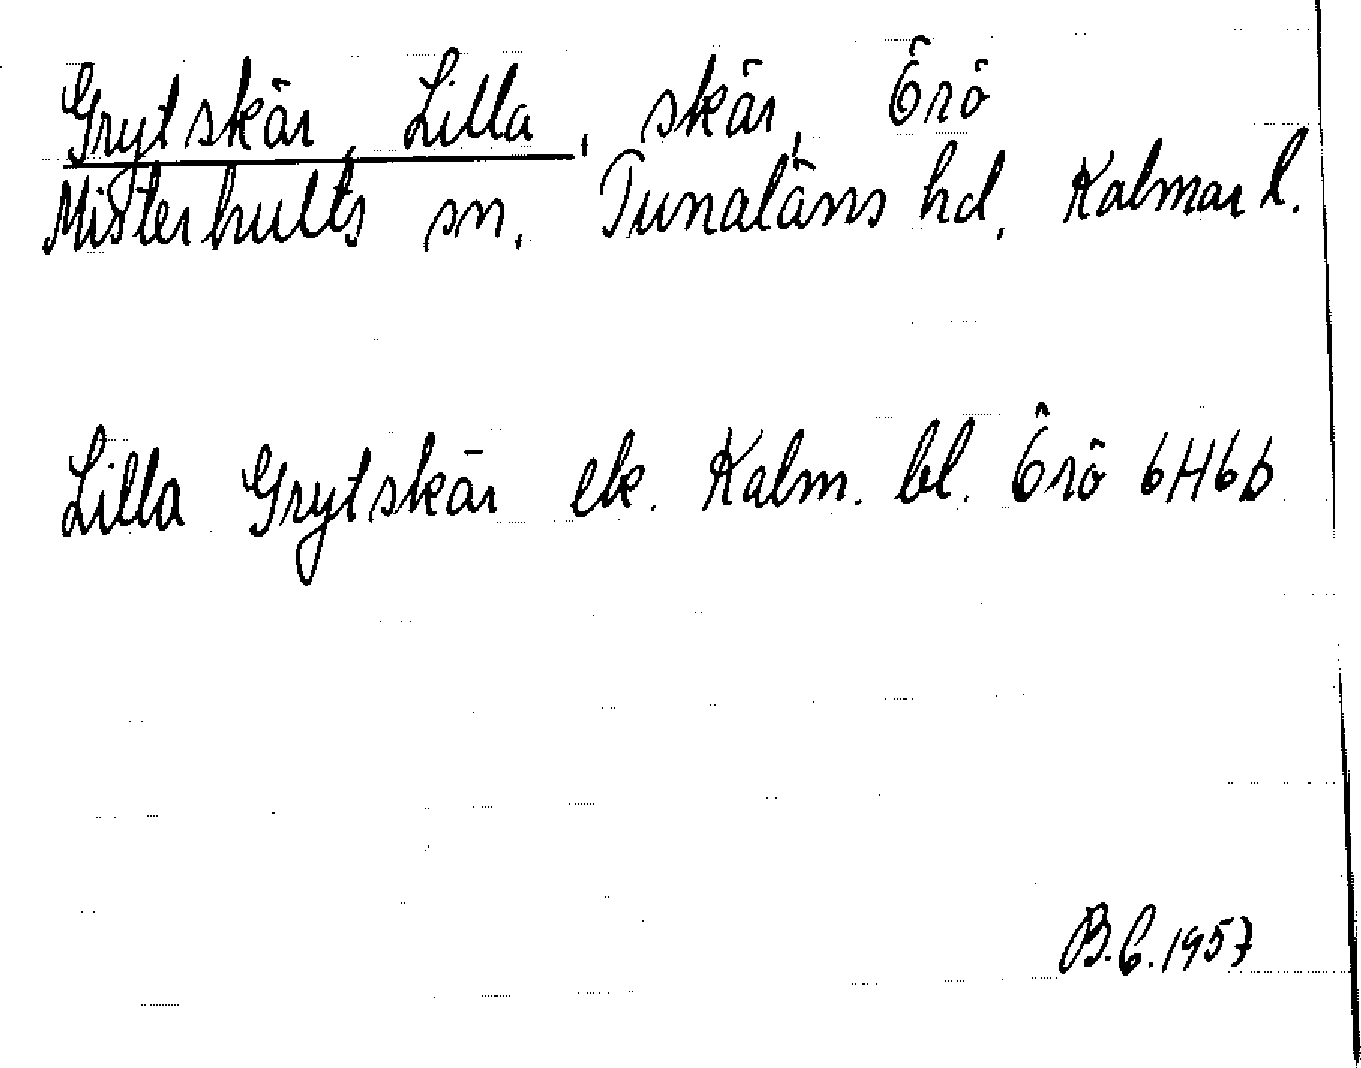 Grytskär, Lilla, skär, Örö
Misterhults sn. Tunaläns hd. Kalmar l.
Lilla Grytskär ek. Kalm. bl. Örö 6H6b
B.C. 1957